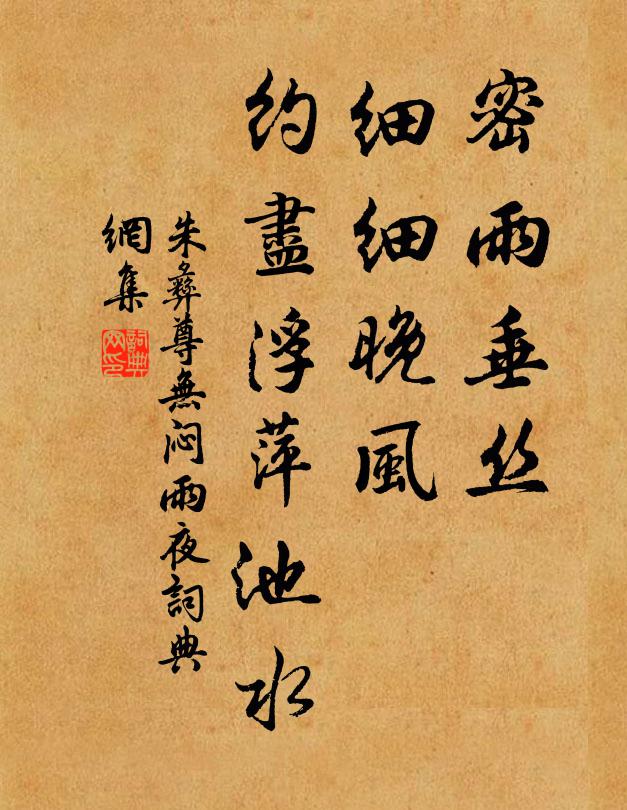 密雨垂丝
细细晚風
約盡浮萍池水
朱彝尊無闷雨夜詞典
網集
詞典
网印